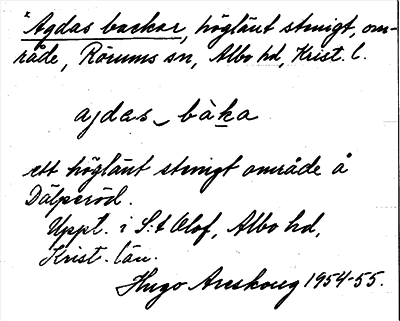 *Agdas backar, höglänt stenigt, om-
råde, Rörums sn, Albo hd, Krist. l.
ajdas bàka
ett höglänt stenigt område å
Dälperöd.
Uppt. i S:t Olof, Albo hd,
Krist. län.
Hugo Areskoug 1954-55.